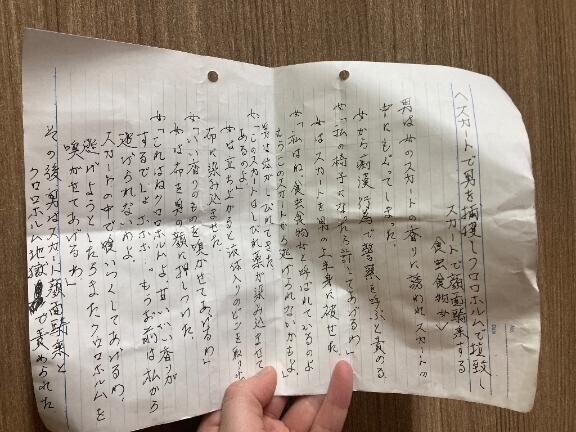 へスカートで男を捕捉しクロロホルムで拉致し
スカートで顔面騎乗する
食虫食物女
男は女のスカートの香りに誘われスカートの
中にもぐってしまった。
女から痴漢行為で警察を呼ぶと責める
女「私の椅子になったら許してあげるわ」
女はスカートを男の上半身に被せた。
女「私はね食虫食物女と呼ばれているのよ
もうこのスカートから逃げられないかもよ」
男は体がしびれてきた。
女「このスカートはしびれ薬が染み込ませて
あるのよ」
女は立ち上がると液体入りのビンを取り
布に染み込ませた。
女「いい香りのものを嗅がせてあげるわ」
女は布を男の顔に押しつけた。
女「これはねクロロホルムよ甘いいい香りが
するでしょホホホ…もうお前は私から
逃げられないわよ。
スカートの中で食いつくしてあげるわ、
逃げようとしたらまたクロロホルムを
嗅がせてあげるわ」
その後、男はスカート顔面騎乗と
クロロホルム地獄で責められた